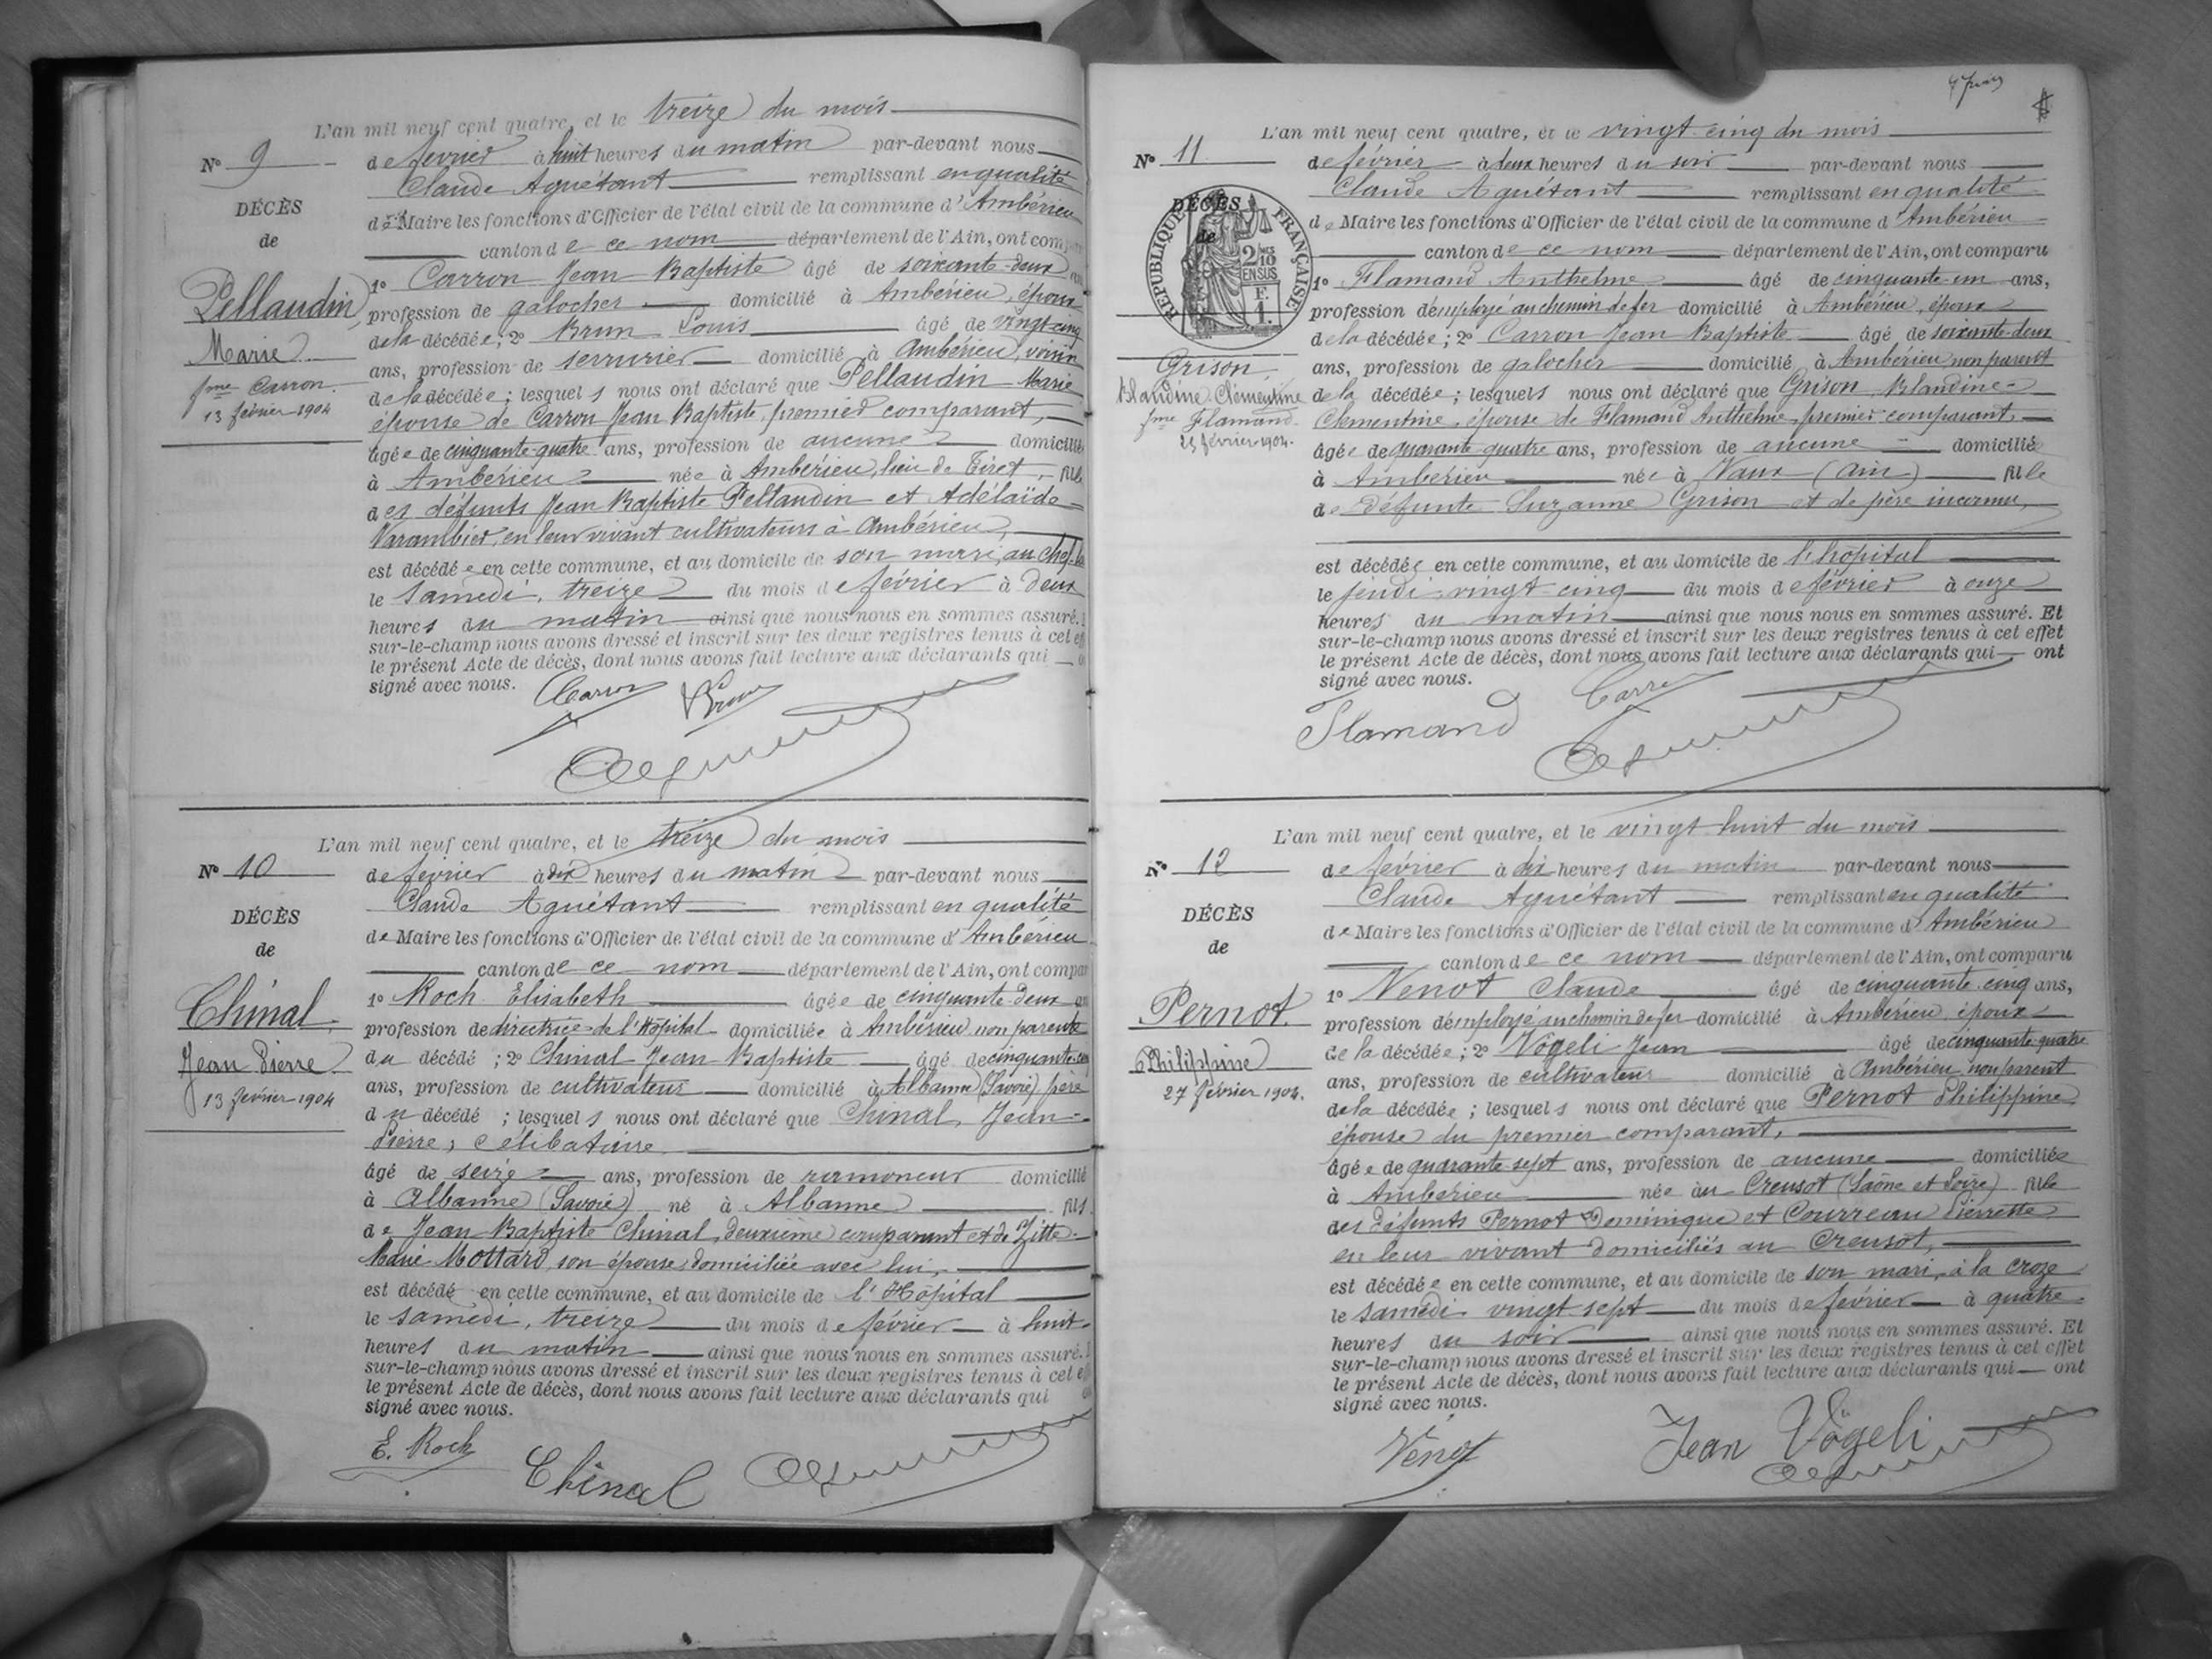 L'an mil neuf cent quatre, et le treize du mois
N° 9
de février à huit heures du matin par-devant nous
Claude Aguétant remplissant en qualité
DÉCÈS
de Maire les fonctions d'Officier de l'état civil de la commune d'Ambérieu
de
canton de ce nom département de l'Ain, ont comparu
1° Carron Jean Baptiste âgé de soixante-deux
Pellaudin,
profession de galocher domicilié à Ambérieu, époux
de la décédée; 2° Brun Louis âgé de vingt-cinq
Marie
ans, profession de serrurier domicilié à Ambérieu, voisin
fme Carron.
de la décédée; lesquels nous ont déclaré que Pellaudin Marie
13 février 1904
épouse de Carron Jean Baptiste, premier comparant,
âgée de cinquante-quatre ans, profession de aucune domiciliée
à Ambérieu née à Ambérieu, lieu de Tiret, fille
des défunts Jean Baptiste Pellaudin et Adélaïde
Varambier, en leur vivant cultivateurs à Ambérieu,
est décédée en cette commune, et au domicile de son mari, au chef-
le samedi, treize du mois de février à deux
heures du matin ainsi que nous nous en sommes assuré.
sur-le-champ nous avons dressé et inscrit sur les deux registres tenus à cet
le présent Acte de décès, dont nous avons fait lecture aux déclarants qui
signé avec nous.
Carron Brun
L'an mil neuf cent quatre, et le treize du mois
N° 10
de février à dix heures du matin par-devant nous
Claude Aguétant remplissant en qualité
DÉCÈS
de Maire les fonctions d'Officier de l'état civil de la commune d'Ambérieu
de
canton de ce nom département de l'Ain, ont compar
1° Koch Elisabeth âgée de cinquante-deux
Chinal,
profession de directrice de l'Hôpital domiciliée à Ambérieu non parente
Jean Pierre
du décédé; 2° Chinal Jean Baptiste âgé de cinquante-
13 février 1904
ans, profession de cultivateur domicilié à Albanne (Savoie) père
du décédé; lesquels nous ont déclaré que Chinal, Jean-
Pierre, célibataire
âgé de seize ans, profession de ramoneur domicilié
à Albanne (Savoie) né à Albanne fils
de Jean Baptiste Chinal, deuxième comparant et de Zitte
Marie Mottard, son épouse domiciliée avec lui,
est décédé en cette commune, et au domicile de l'Hôpital
le samedi, treize du mois de février à huit
heures du matin ainsi que nous nous en sommes assuré.
sur-le-champ nous avons dressé et inscrit sur les deux registres tenus à cet
le présent Acte de décès, dont nous avons fait lecture aux déclarants qui
signé avec nous.
E. Koch
Chinal
L'an mil neuf cent quatre, et le vingt-cinq du mois
N° 11
de février à deux heures du soir par-devant nous
Claude Aguétant remplissant en qualité
DÉCÈS
de
RÉPUBLIQUE FRANÇAISE
2/10 EN SUS
F. 1.
de Maire les fonctions d'Officier de l'état civil de la commune d'Ambérieu
canton de ce nom département de l'Ain, ont comparu
1° Flamand Anthelme âgé de cinquante-un ans,
profession d'employé au chemin de fer domicilié à Ambérieu, époux
de la décédée; 2° Carron Jean Baptiste âgé de soixante-deux
Grison,
ans, profession de galocher domicilié à Ambérieu non parent
Blandine Clémentine
de la décédée; lesquels nous ont déclaré que Grison Blandine-
fme Flamand.
Clémentine, épouse de Flamand Anthelme, premier comparant,
25 février 1904.
âgée de quarante-quatre ans, profession de aucune domiciliée
à Ambérieu née à Vaux (Ain) fille
de défunte Suzanne Grison et de père inconnu,
est décédée en cette commune, et au domicile de l'hôpital
le jeudi vingt-cinq du mois de février à onze
heures du matin ainsi que nous nous en sommes assuré. Et
sur-le-champ nous avons dressé et inscrit sur les deux registres tenus à cet effet
le présent Acte de décès, dont nous avons fait lecture aux déclarants qui ont
signé avec nous.
Flamand Carron
L'an mil neuf cent quatre, et le vingt huit du mois
N° 12
de février à dix heures du matin par-devant nous
Claude Aguétant remplissant en qualité
DÉCÈS
de Maire les fonctions d'Officier de l'état civil de la commune d'Ambérieu
de
canton de ce nom département de l'Ain, ont comparu
1° Venot Claude âgé de cinquante-cinq ans,
Pernot
profession d'employé au chemin de fer domicilié à Ambérieu, époux
de la décédée; 2° Vögeli Jean âgé de cinquante-quatre
Philippine
ans, profession de cultivateur domicilié à Ambérieu non parent
27 février 1904.
de la décédée; lesquels nous ont déclaré que Pernot Philippine
épouse du premier comparant,
âgée de quarante-sept ans, profession de aucune domiciliée
à Ambérieu née au Creusot (Saône et Loire) fille
des défunts Pernot Dominique et Courreau Pierrette
en leur vivant domiciliés au Creusot,
est décédée en cette commune, et au domicile de son mari, à la Croze
le samedi vingt sept du mois de février à quatre
heures du soir ainsi que nous nous en sommes assuré. Et
sur-le-champ nous avons dressé et inscrit sur les deux registres tenus à cet effet
le présent Acte de décès, dont nous avons fait lecture aux déclarants qui ont
signé avec nous.
Venot Jean Vögeli